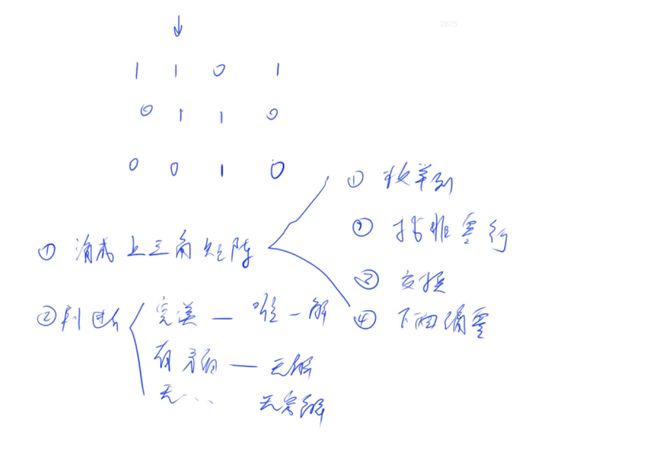 2875
1 1 0 1
0 1 1 0
0 0 1 0
① 消成上三角矩阵
① 枚举列
② 找非零行
③ 交换
④ 下面消零
② 判断
完美 — 唯一解
有矛盾 — 无解
无... 无穷解